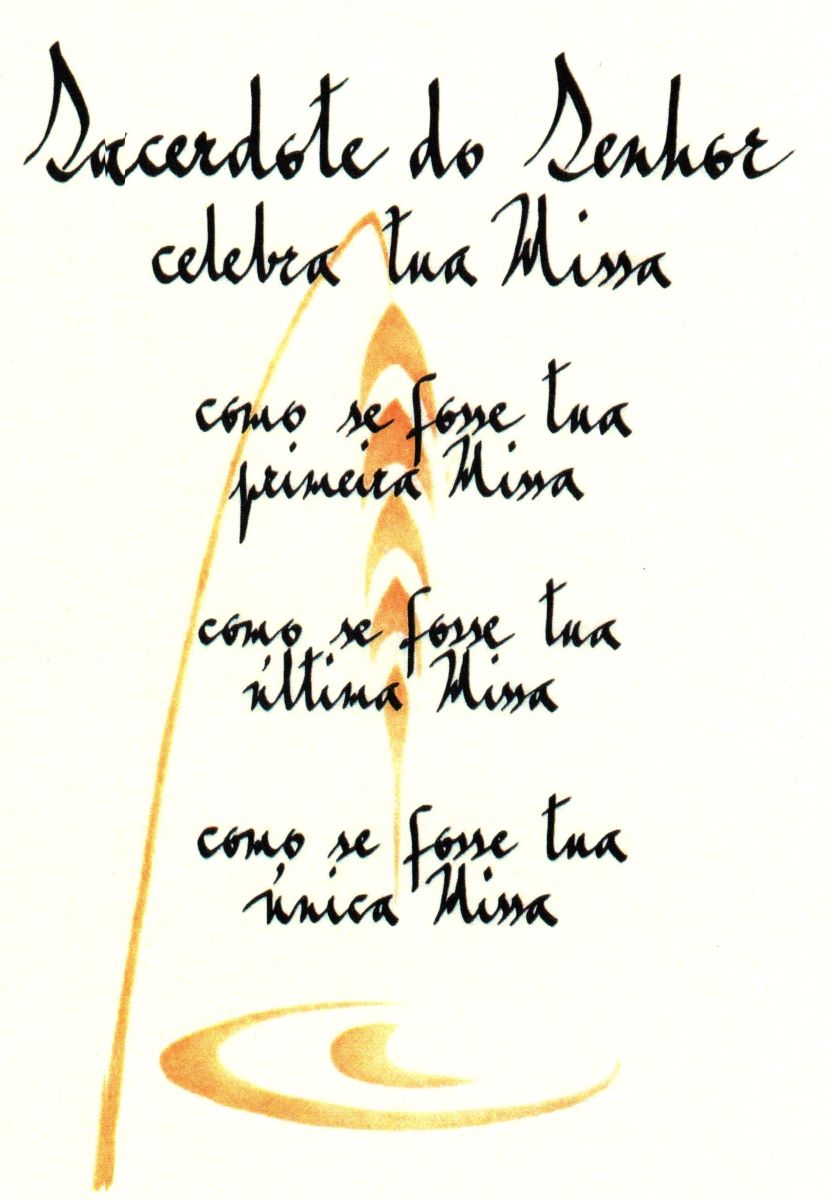 Sacerdote do Senhor
celebra tua Missa
como se fosse tua
primeira Missa
como se fosse tua
última Missa
como se fosse tua
única Missa